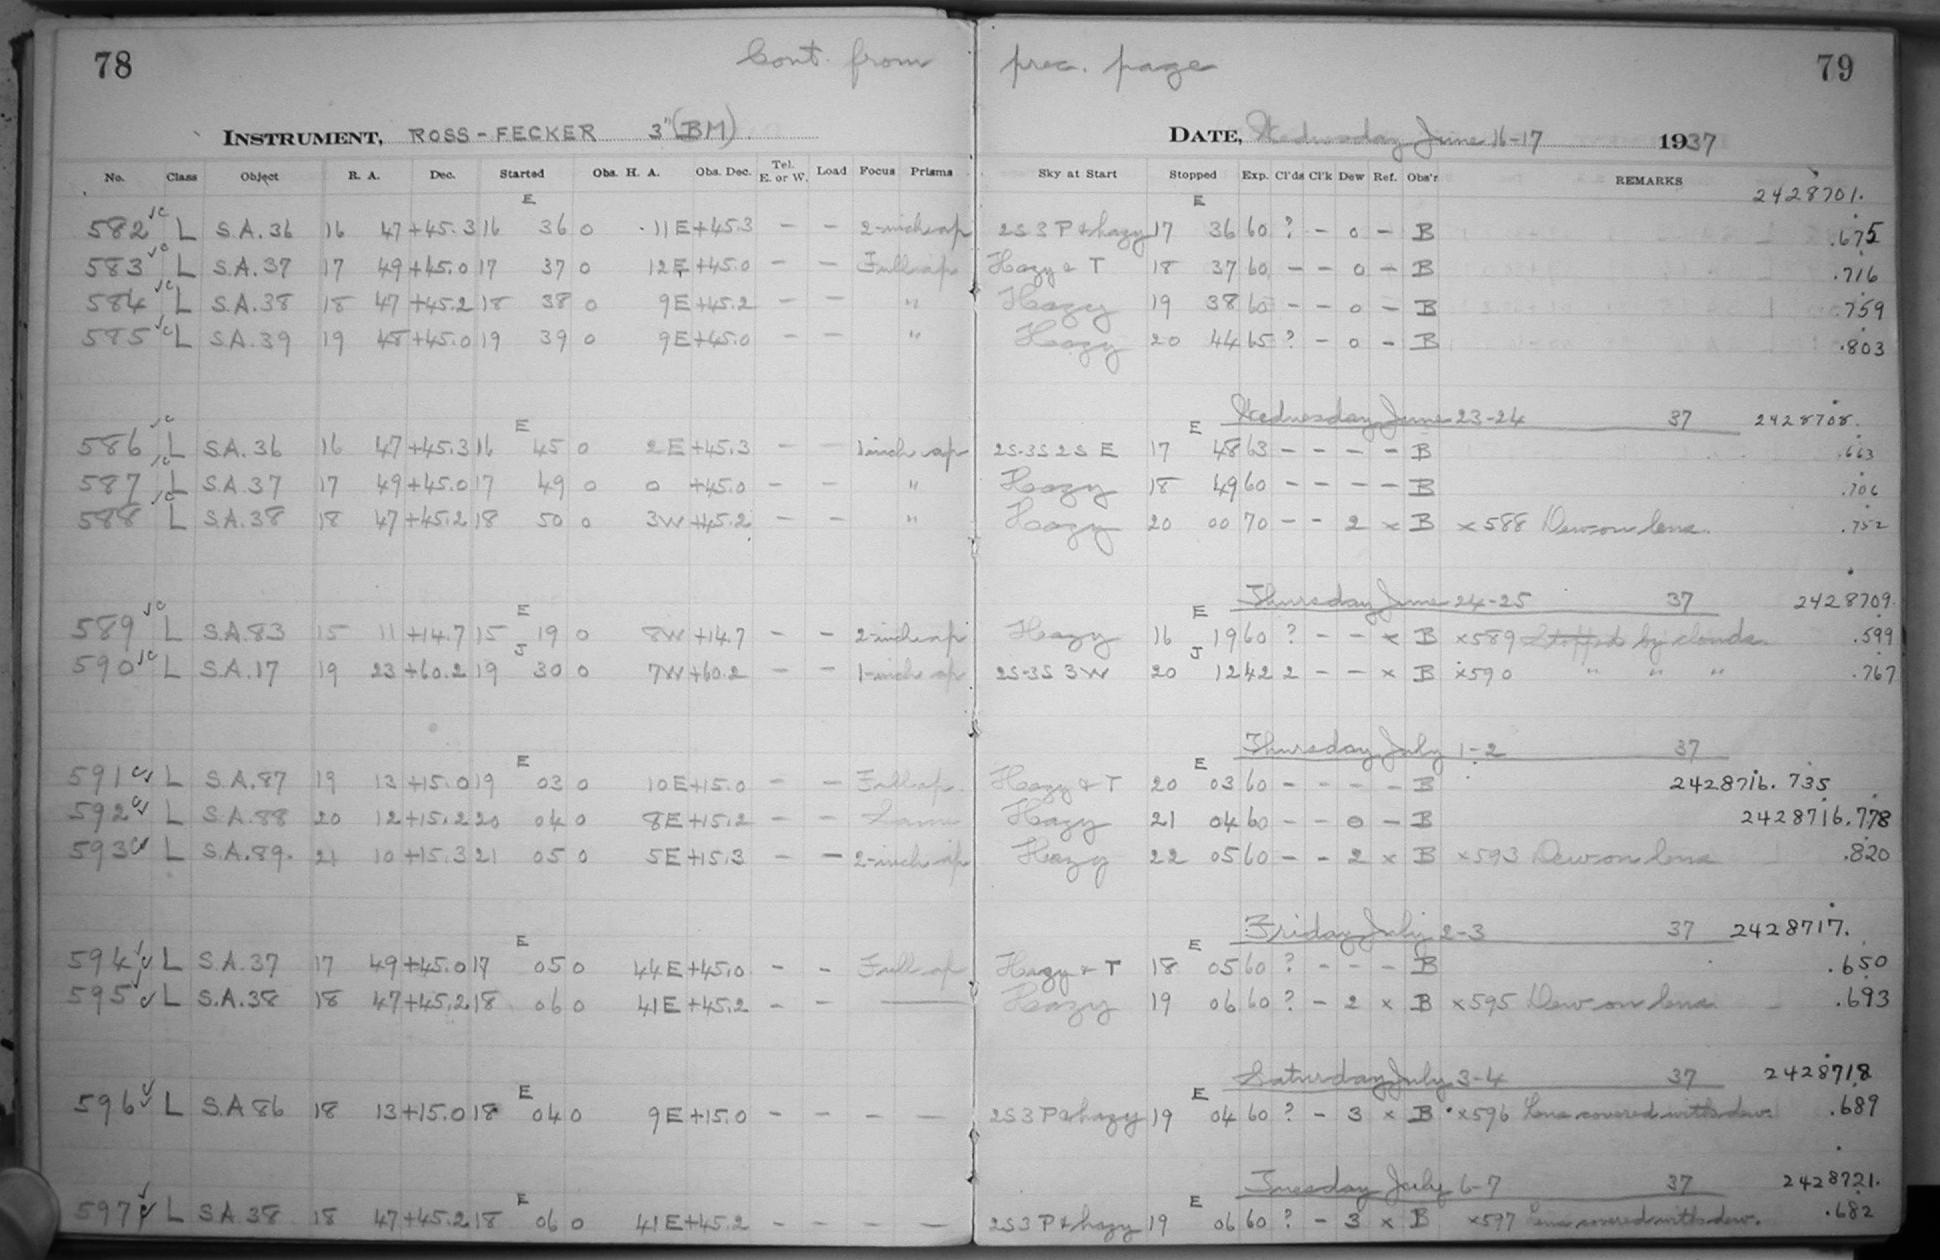 78 Cont. from prec. page 79
INSTRUMENT, ROSS-FECKER 3"(BM) DATE, Wednesday June 16-17 1937
No. Class Object R. A. Dec. Started Obs. H. A. Obs. Dec. Tel. E. or W. Load Focus Prisms Sky at Start Stopped Exp. Cl'ds Cl'k Dew Ref. Obs'r REMARKS
E E 2428701.
582 L S.A.36 16 47 +45.3 16 36 0 11E +45.3 - - 2-inch ap 2S 3 P & hazy 17 36 60 ? - 0 - B .675
583 L S.A.37 17 49 +45.0 17 37 0 12E +45.0 - - Full ap Hazy & T 18 37 60 - - 0 - B .716
584 L S.A.38 18 47 +45.2 18 38 0 9E +45.2 - - " Hazy 19 38 60 - - 0 - B .759
585 L S.A.39 19 48 +45.0 19 39 0 9E +45.0 - - " Hazy 20 44 65 ? - 0 - B .803
E E Wednesday June 23-24 37 2428708.
586 L S.A.36 16 47 +45.3 16 45 0 2E +45.3 - - 1 inch ap 2S-3S 2S E 17 48 63 - - - - B .663
587 L S.A.37 17 49 +45.0 17 49 0 0 +45.0 - - " Hazy 18 49 60 - - - - B .706
588 L S.A.38 18 47 +45.2 18 50 0 3W +45.2 - - " Hazy 20 00 70 - - 2 x B x588 Dew on lens. .752
E E Thursday June 24-25 37 2428709.
589 L S.A.83 15 11 +14.7 15 19 0 8W +14.7 - - 2-inch ap Hazy 16 19 60 ? - - x B x589 Stopped by clouds. .599
J J
590 L S.A.17 19 23 +60.2 19 30 0 7W +60.2 - - 1-inch ap 2S-3S 3W 20 12 42 2 - - x B x590 " " " .767
E E Thursday July 1-2 37
591 L S.A.87 19 13 +15.0 19 03 0 10E +15.0 - - Full ap. Hazy & T 20 03 60 - - - - B 2428716.735
592 L S.A.88 20 12 +15.2 20 04 0 8E +15.2 - - Same Hazy 21 04 60 - - 0 - B 2428716.778
593 L S.A.89. 21 10 +15.3 21 05 0 5E +15.3 - - 2-inch ap Hazy 22 05 60 - - 2 x B x593 Dew on lens .820
E E Friday July 2-3 37 2428717.
594 L S.A.37 17 49 +45.0 17 05 0 44E +45.0 - - Full ap Hazy & T 18 05 60 ? - - - B .650
595 L S.A.38 18 47 +45.2 18 06 0 41E +45.2 - - — Hazy 19 06 60 ? - 2 x B x595 Dew on lens. .693
E E Saturday July 3-4 37 2428718
596 L S.A 86 18 13 +15.0 18 04 0 9E +15.0 - - - - 2S 3 P & hazy 19 04 60 ? - 3 x B x596 Lens covered with dew. .689
E E Tuesday July 6-7 37 2428721.
597 L S.A 38 18 47 +45.2 18 06 0 41E +45.2 - - - - 2S 3 P & hazy 19 06 60 ? - 3 x B x597 Lens covered with dew. .682